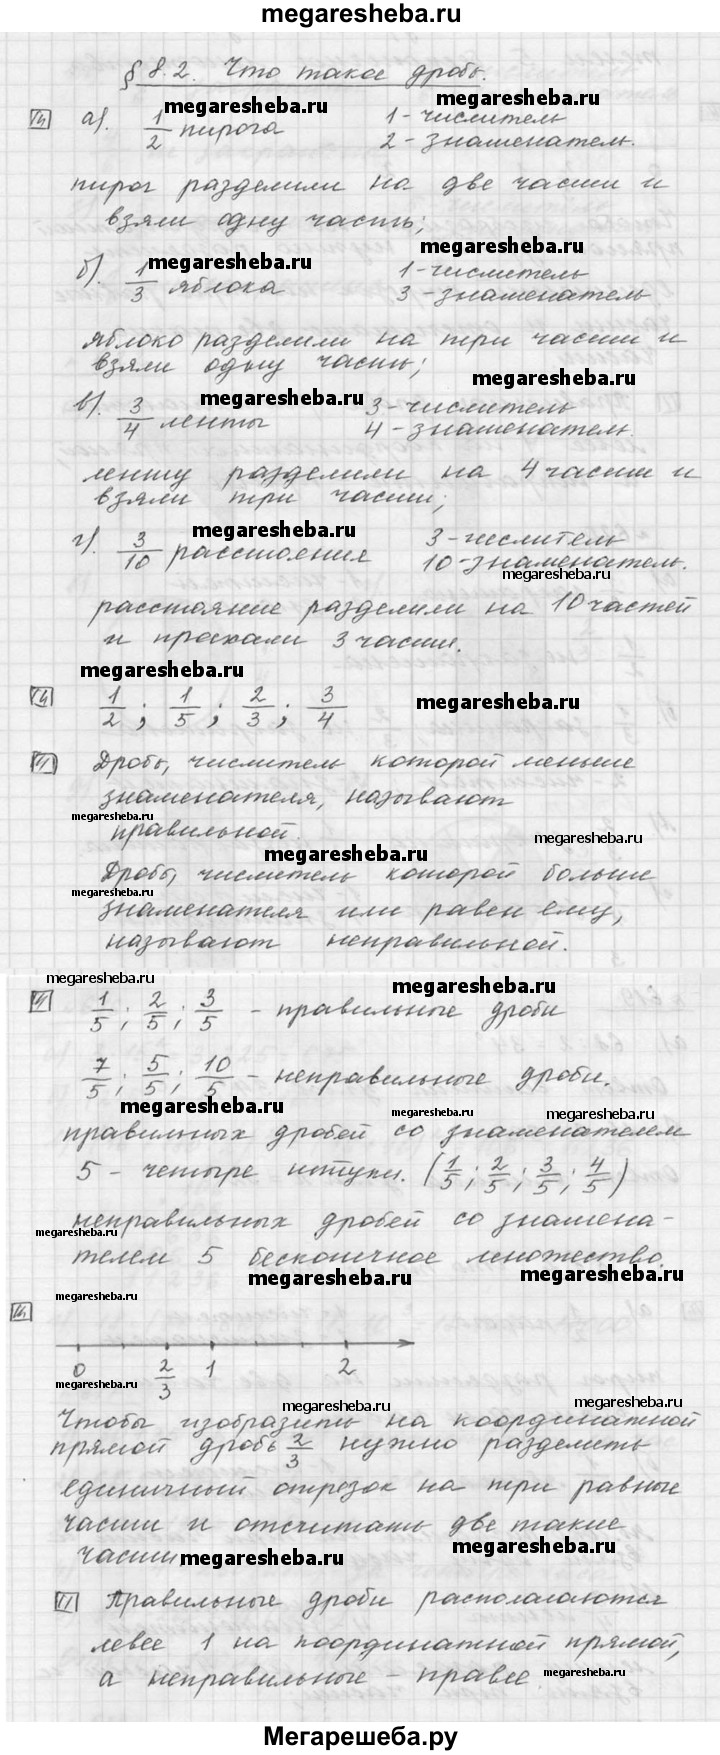 megaresheba.ru
§ 8.2. Что такое дробь.
megaresheba.ru megaresheba.ru
а). 1/2 пирога 1 - числитель
2 - знаменатель.
пирог разделили на две части и
взяли одну часть;
megaresheba.ru megaresheba.ru
б). 1/3 яблока 1 - числитель
3 - знаменатель.
яблоко разделили на три части и
взяли одну часть;
megaresheba.ru
megaresheba.ru
в). 3/4 ленты 3 - числитель
4 - знаменатель.
ленту разделили на 4 части и
взяли три части;
megaresheba.ru megaresheba.ru
г). 3/10 расстояния 3 - числитель
10 - знаменатель.
megaresheba.ru
расстояние разделили на 10 частей
и проехали 3 части.
megaresheba.ru
1/2 ; 1/5 ; 2/3 ; 3/4
megaresheba.ru
Дробь, числитель которой меньше
знаменателя, называют
megaresheba.ru
правильной.
megaresheba.ru
megaresheba.ru
Дробь, числитель которой больше
megaresheba.ru
знаменателя или равен ему,
называют неправильной.
megaresheba.ru megaresheba.ru
1/5 ; 2/5 ; 3/5 - правильные дроби
7/5 ; 5/5 ; 10/5 - неправильные дроби.
megaresheba.ru megaresheba.ru megaresheba.ru
правильных дробей со знаменателем
5 - четыре штуки. (1/5 ; 2/5 ; 3/5 ; 4/5)
неправильных дробей со знамена-
megaresheba.ru
телем 5 бесконечное множество.
megaresheba.ru megaresheba.ru
megaresheba.ru
0 2/3 1 2
megaresheba.ru
megaresheba.ru megaresheba.ru
Чтобы изобразить на координатной
прямой дробь 2/3 нужно разделить
единичный отрезок на три равные
части и отсчитать две такие
части
megaresheba.ru megaresheba.ru
Правильные дроби располагаются
левее 1 на координатной прямой,
а неправильные - правее.
megaresheba.ru
Мегарешеба.ру